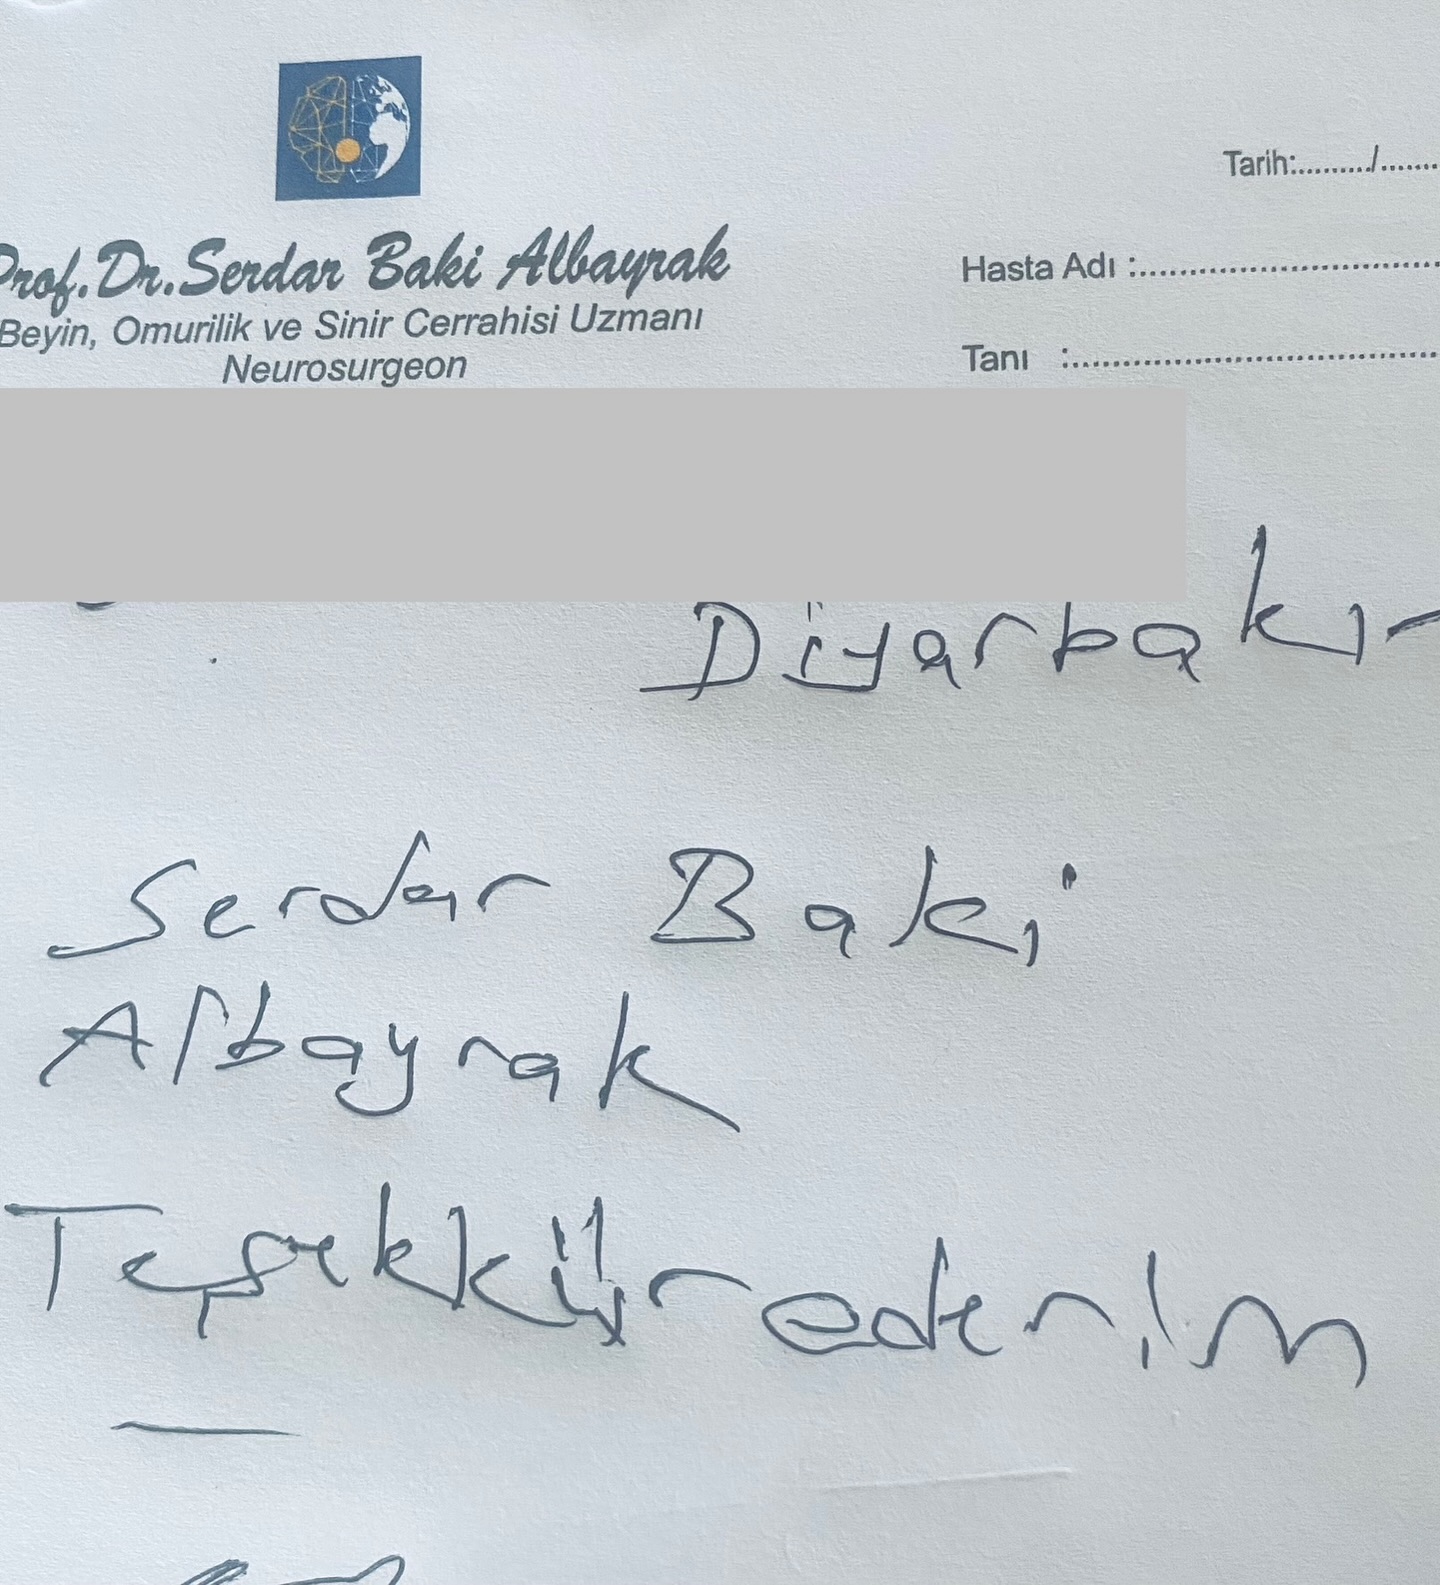 Tarih:........../.......
Prof. Dr. Serdar Baki Albayrak
Hasta Adı :................................
Beyin, Omurilik ve Sinir Cerrahisi Uzmanı
Neurosurgeon
Tanı :.......................................
Diyarbakır
Serdar Baki
Albayrak
Teşekkür ederim